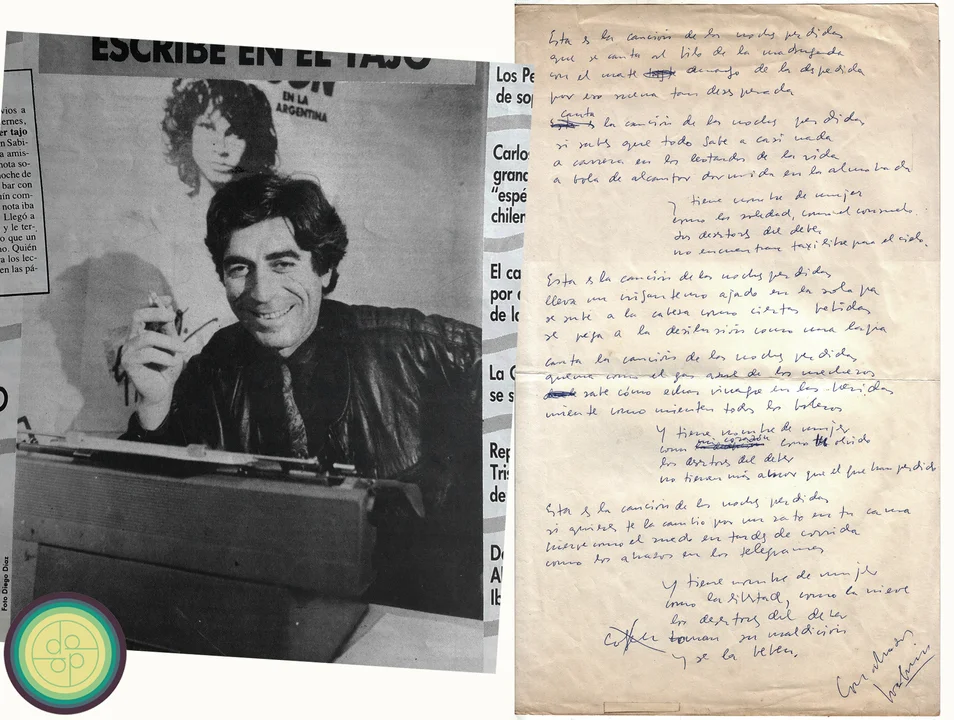 ESCRIBE EN EL TAJO
EN LA
ARGENTINA
vios a
ernes,
er tajo
n Sabi-
a amis-
nota so-
noche de
bar con
uín com-
nota iba
Llegó a
y le ter-
o que un
no. Quién
a los lec-
en las pá-
O
Foto Diego Díaz
Los Pe
de sop
Carlo
grand
“espé
chilen
El ca
por e
de la
La G
se s
Rep
Tris
de
De
Al
Ib
Esta es la canción de las noches perdidas
que se canta al filo de la madrugada
con el mate amargo de la despedida
por eso suena tan desesperada
canta
la canción de las noches perdidas
si sabes que todo sabe a casi nada
a carrera en los leotardos de la vida
a bola de alcanfor dormida en la almohada
y tiene nombre de mujer
como la soledad, como el consuelo
los desertores del deber
no encuentran taxi libre para el cielo.
Esta es la canción de las noches perdidas
lleva un crisantemo ajado en la solapa
se sube a la cabeza como ciertas bebidas
se pega a la desilusión como una lapa
canta la canción de las noches perdidas
quema como el gas azul de los mecheros
sabe cómo echar vinagre en las heridas
miente como mienten todos los boleros
y tiene nombre de mujer
como mi corazón como el olvido
los desertores del deber
no tienen más amor que el que han perdido
Esta es la canción de las noches perdidas
si quieres te la cambio por un rato en tu cama
huele como el miedo en tardes de corrida
como los abrazos en los telegramas
y tiene nombre de mujer
como la libertad, como la nieve
los desertores del deber
toman su maldición
y se la beben.